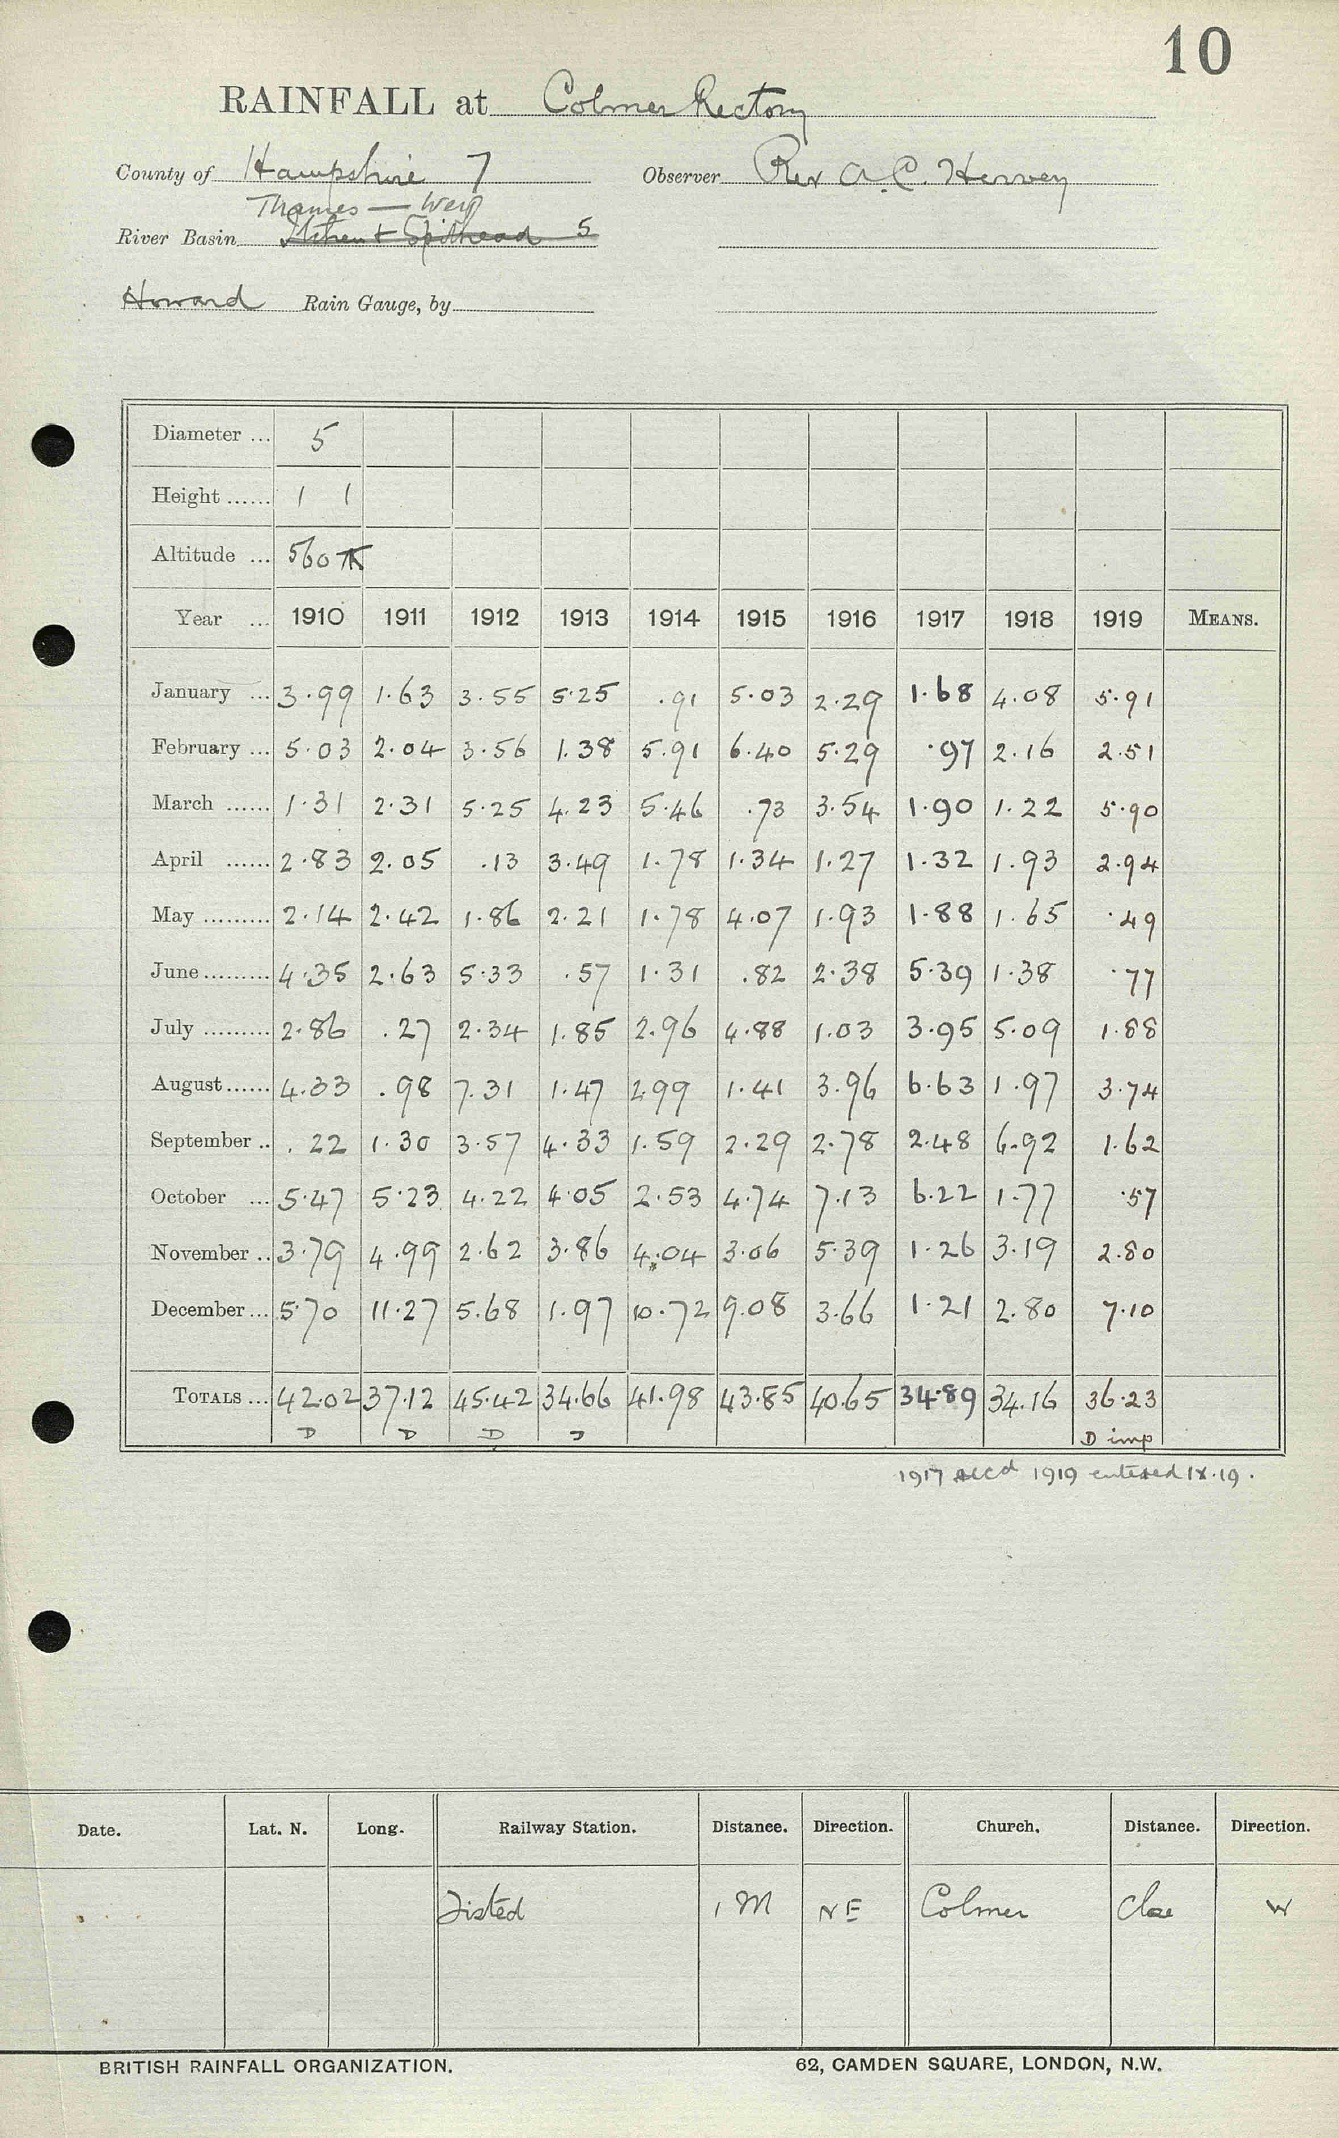 10
RAINFALL at Colmer Rectory
County of Hampshire 7 Observer Rev A. C. Hervey
Thames — Wey
River Basin Itchen + Spithead 5
Howard Rain Gauge, by
Diameter ... 5
Height ...... 1 1
Altitude ... 560
Year ... 1910 1911 1912 1913 1914 1915 1916 1917 1918 1919 MEANS.
January ... 3.99 1.63 3.55 5.25 .91 5.03 2.29 1.68 4.08 5.91
February ... 5.03 2.04 3.56 1.38 5.91 6.40 5.29 .97 2.16 2.51
March ...... 1.31 2.31 5.25 4.23 5.46 .73 3.54 1.90 1.22 5.90
April ...... 2.83 2.05 .13 3.49 1.78 1.34 1.27 1.32 1.93 2.94
May ......... 2.14 2.42 1.86 2.21 1.78 4.07 1.93 1.88 1.65 .49
June ......... 4.35 2.63 5.33 .57 1.31 .82 2.38 5.39 1.38 .77
July ......... 2.86 .27 2.34 1.85 2.96 4.88 1.03 3.95 5.09 1.88
August ...... 4.33 .98 7.31 1.47 2.99 1.41 3.96 6.63 1.97 3.74
September .. .22 1.30 3.57 4.33 1.59 2.29 2.78 2.48 6.92 1.62
October ... 5.47 5.23 4.22 4.05 2.53 4.74 7.13 6.22 1.77 .57
November .. 3.79 4.99 2.62 3.86 4.04 3.06 5.39 1.26 3.19 2.80
December ... 5.70 11.27 5.68 1.97 10.72 9.08 3.66 1.21 2.80 7.10
TOTALS ... 42.02 37.12 45.42 34.66 41.98 43.85 40.65 34.89 34.16 36.23
D D D D D imp
1917 1919 entered IX.19.
Date. Lat. N. Long. Railway Station. Distance. Direction. Church. Distance. Direction.
Tisted 1 M NE Colmer Close W
BRITISH RAINFALL ORGANIZATION. 62, CAMDEN SQUARE, LONDON, N.W.